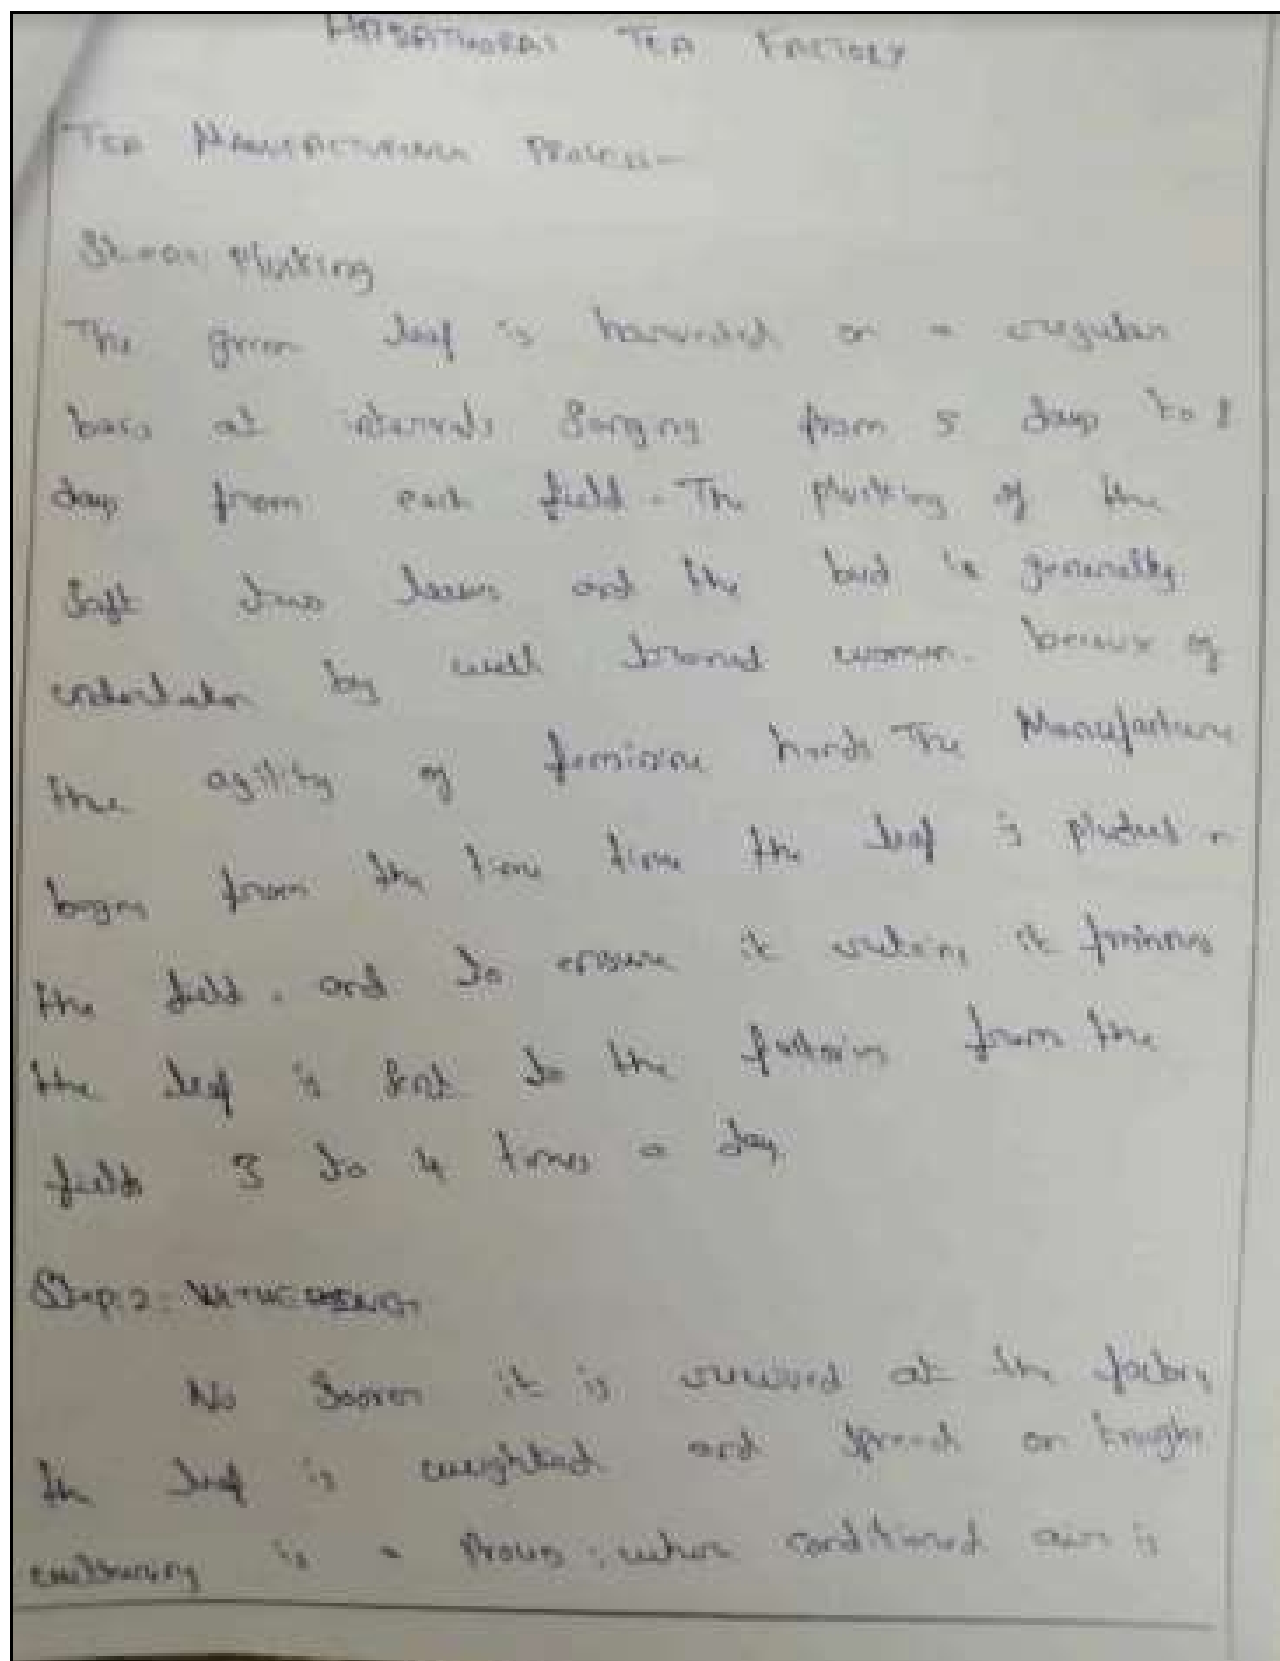 TEA FACTORY
TEA MANUFACTURING PROCESS—
Plucking
The green leaf is harvested on a regular
basis at intervals from 5 days to 8
days from each field. The plucking of the
Soft two leaves and the bud is generally
undertaken by well trained women because of
the agility of feminine hands The Manufacture
begins from the time time the leaf is plucked
the field. and to ensure it it
the leaf is Sent to the factories from the
fields 3 to 4 times a day
Step:2: WITHERING
No Sooner it is received at the factory
the leaf is weighted and Spread on troughs
withering is a Process, where conditioned air is